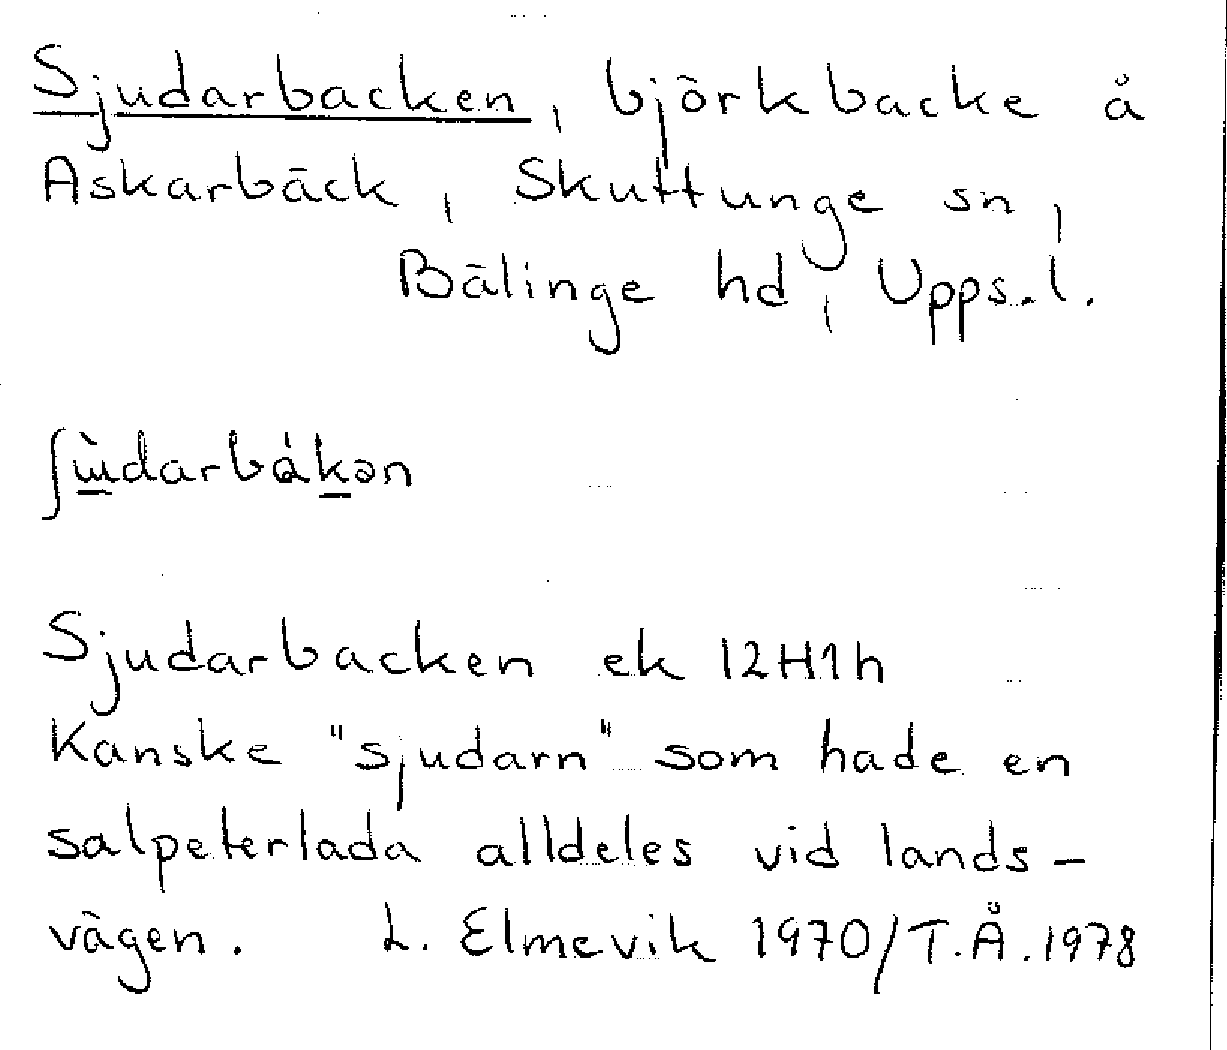 Sjudarbacken, björkbacke å
Askarbäck, Skuttunge sn,
Bälinge hd, Upps. l.
ʃɯ̀darbákən
Sjudarbacken ek 12H1h
Kanske "sjudarn" som hade en
salpeterlada alldeles vid lands-
vägen. L. Elmevik 1970/T.Å.1978